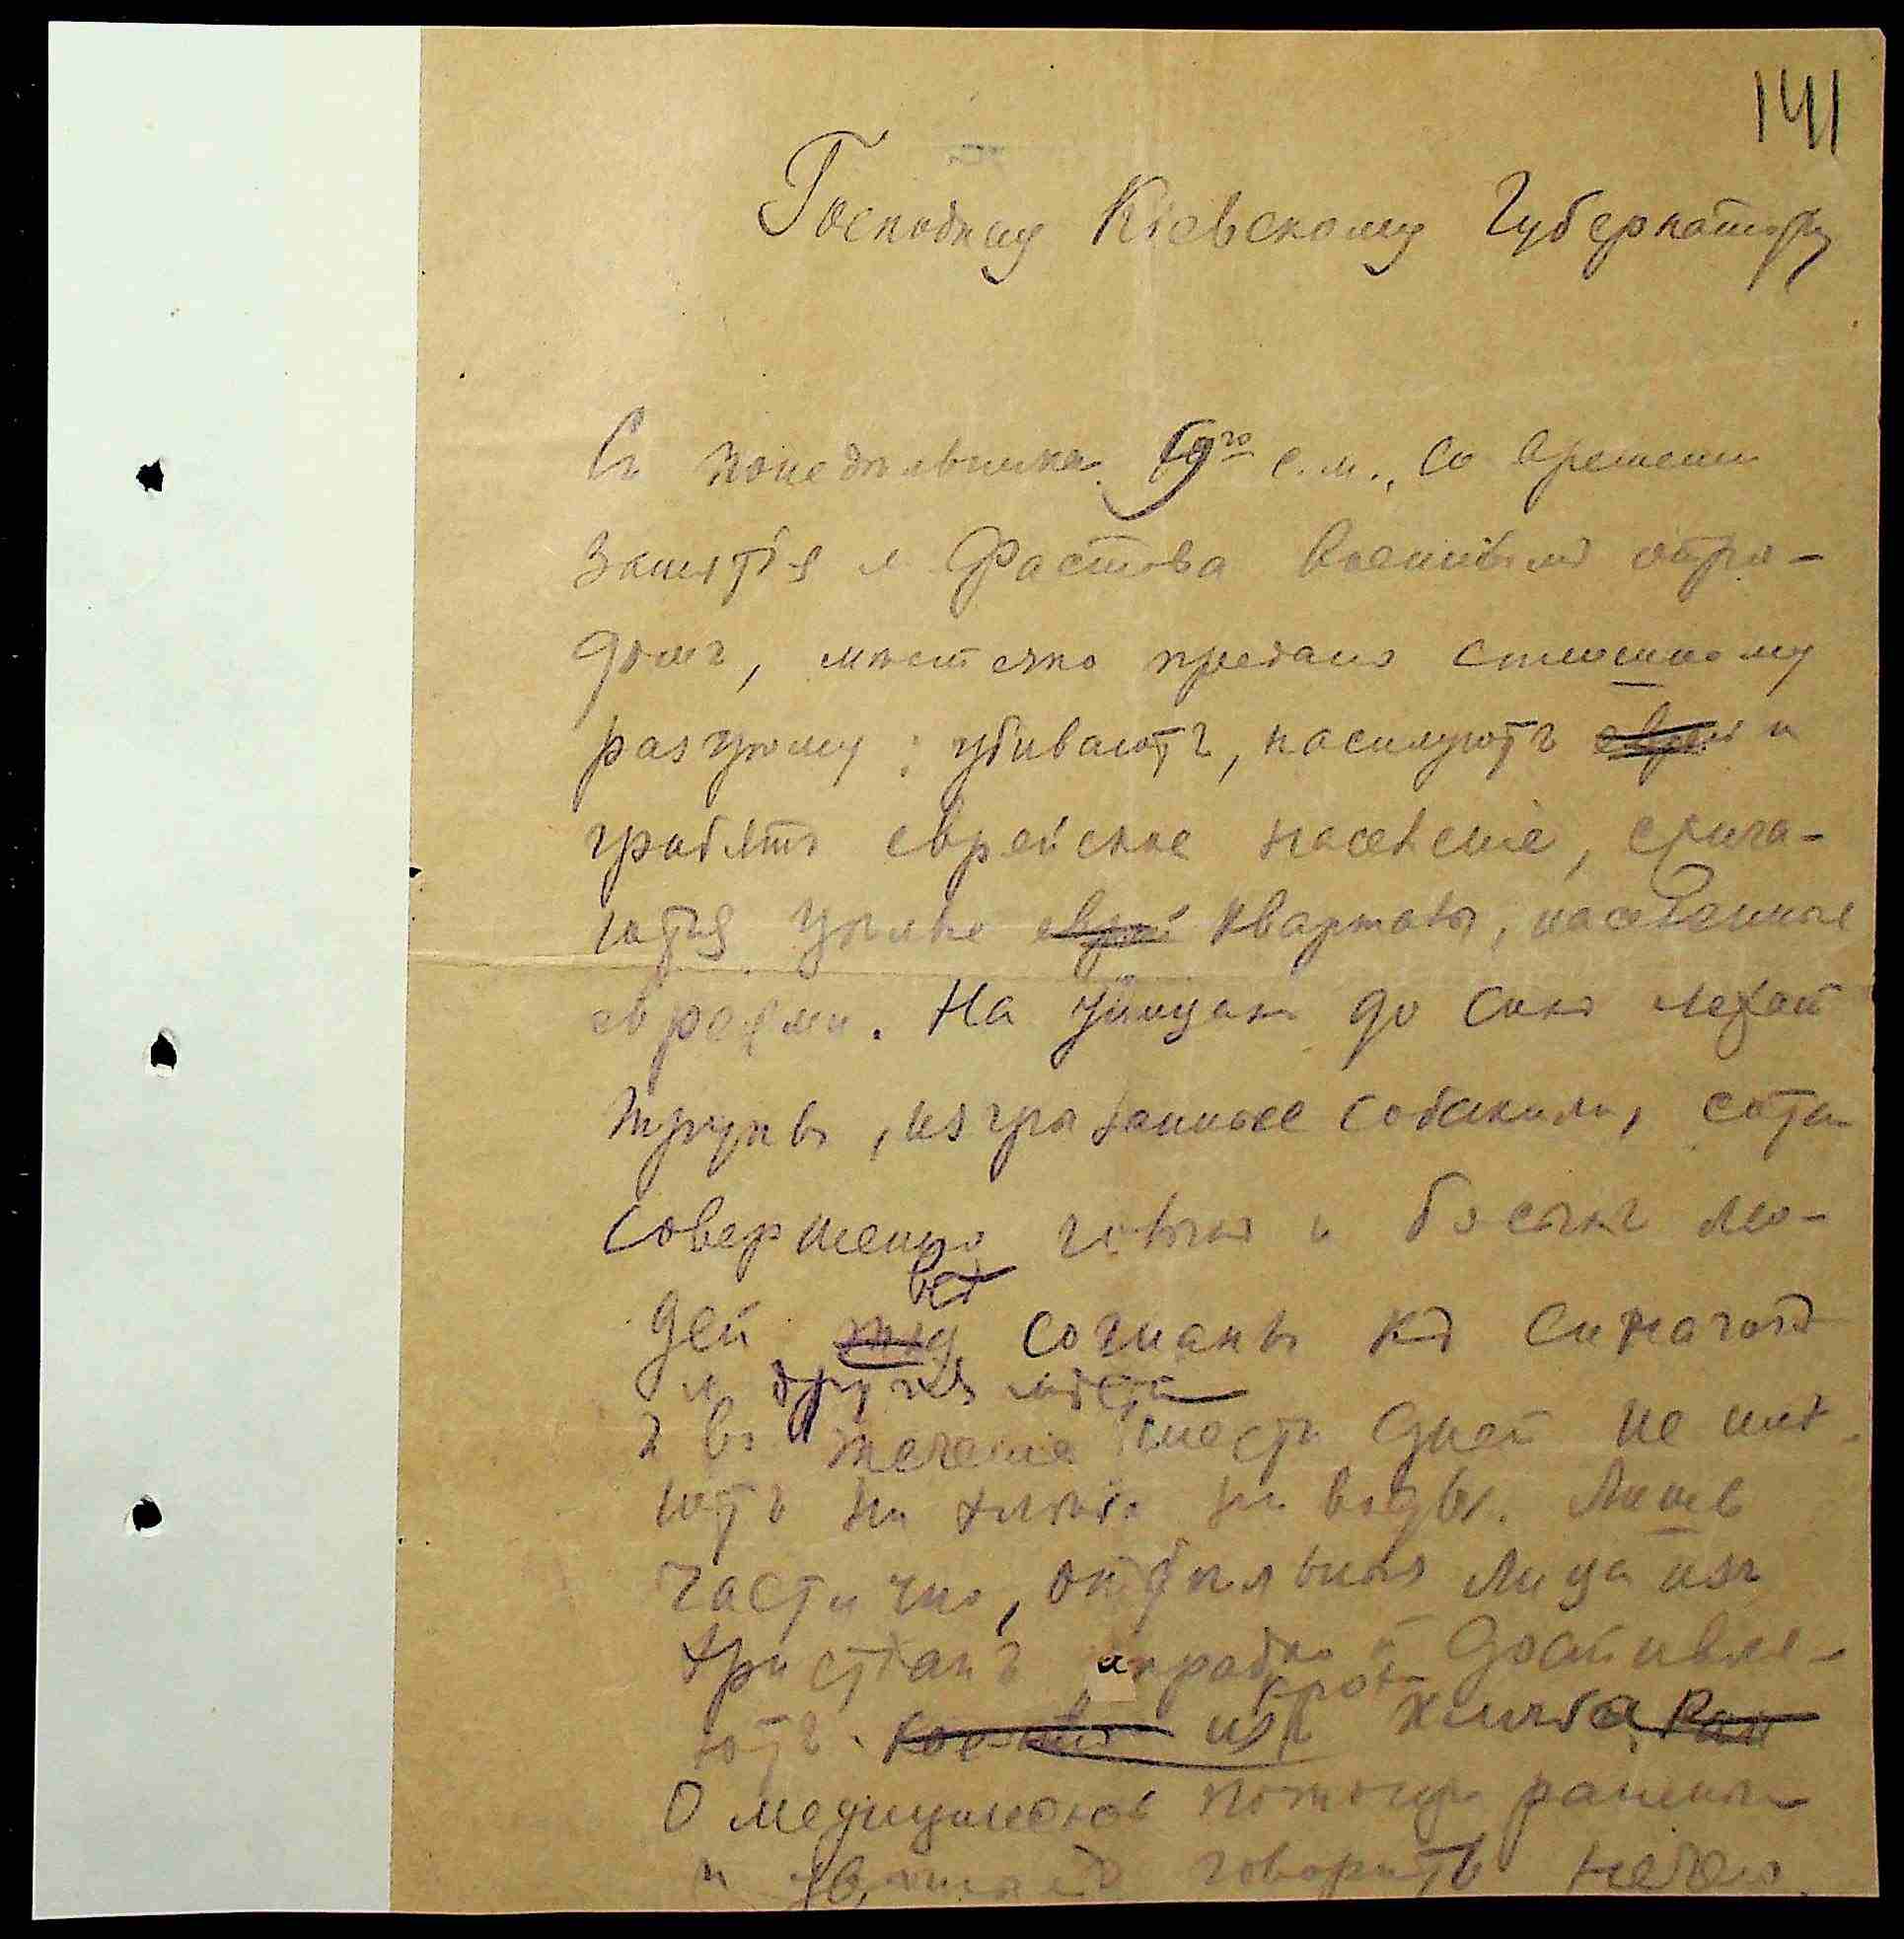 141
Господину Кіевскому Губернатору
Съ понедѣльника 9го с.м., со времени
занятія м Фастова военнымъ отря-
домъ, мѣстечко предано сплошному
разгрому: убиваютъ, насилуютъ и
грабятъ еврейское населеніе, сжига-
ются цѣлые еврей кварталы, населенные
евреями. На улицахъ до сихъ лежатъ
трупы, изгрызанные собаками, сотни
совершенно голыхъ и босыхъ лю-
дей
всѣ
согнаны къ синагогѣ
и другія мѣста
и въ теченіе шести дней не имѣ-
ютъ ни хлѣба ни воды. Лишь
частично, отдѣльныя лица изъ
христіанъ украдкой доставля-
ютъ имъ
крохи
хлѣба
О медицинской помощи раненымъ
и говорить нечего.